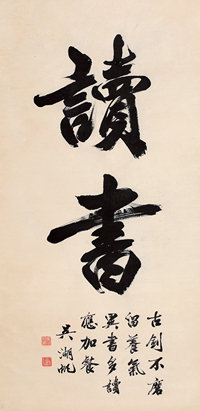 讀書
古劍不磨
留養氣
異書多讀
應加餐
吳湖帆